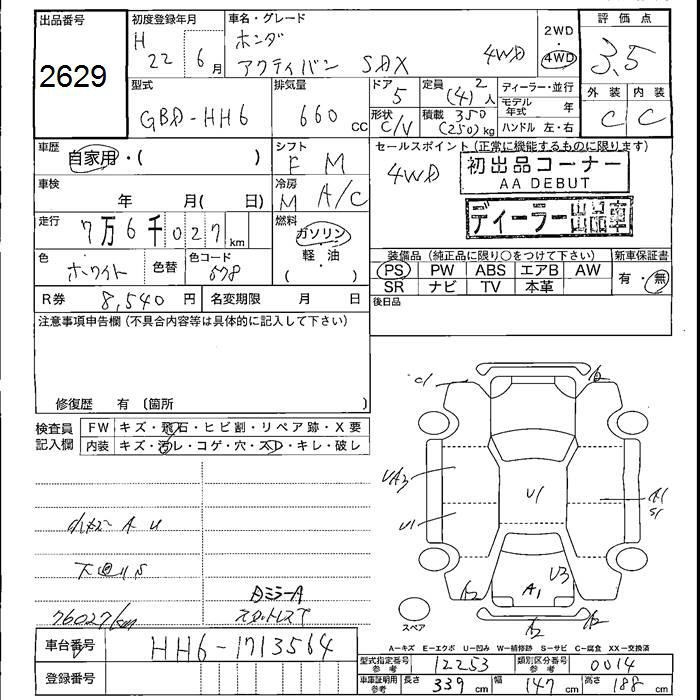 出品番号
2629
初度登録年月
H 22年 6月
車名・グレード
ホンダ
アクティバン SDX 4WD
2WD
・
4WD
評価点
3.5
外装 内装
C C
型式
GBD-HH6
排気量
660 cc
ドア
5
形状
C/V
定員 2
(4)人
積載 350
(250)kg
ディーラー・並行
モデル年式 年
ハンドル 左・右
車歴
自家用・( )
シフト
F M
車検
年 月( 日)
冷房
M A/C
走行
7万6千027km
燃料
ガソリン
軽・油
( ・ )
色
ホワイト
色替
色コード
R券 8,540円
名変期限 月 日
セールスポイント(正常に機能するものに限ります)
4WD
初出品コーナー
AA DEBUT
ディーラー出品車
装備品(純正品に限り○をつけて下さい)
新車保証書
PS PW ABS エアB AW
SR ナビ TV 本革
有・無
後日品
注意事項申告欄(不具合内容等は具体的に記入して下さい)
修復歴 有〔箇所 〕
検査員記入欄
FW キズ・飛石・ヒビ割・リペア跡・X要
内装 キズ・汚レ・コゲ・穴・スレ・キレ・破レ
A U
76027km
UA3
U1
U1
A1
S1
U3
A1
A2
A2
A2
スペア
車台番号 HH6-1713564
登録番号
A−キズ E−エクボ U−凹み W−補修跡 S−サビ C−腐食 XX−交換済
型式指定番号参考 12253
類別区分番号参考 0014
車庫証明用参考 長さ 339cm 幅 147cm 高さ 188cm